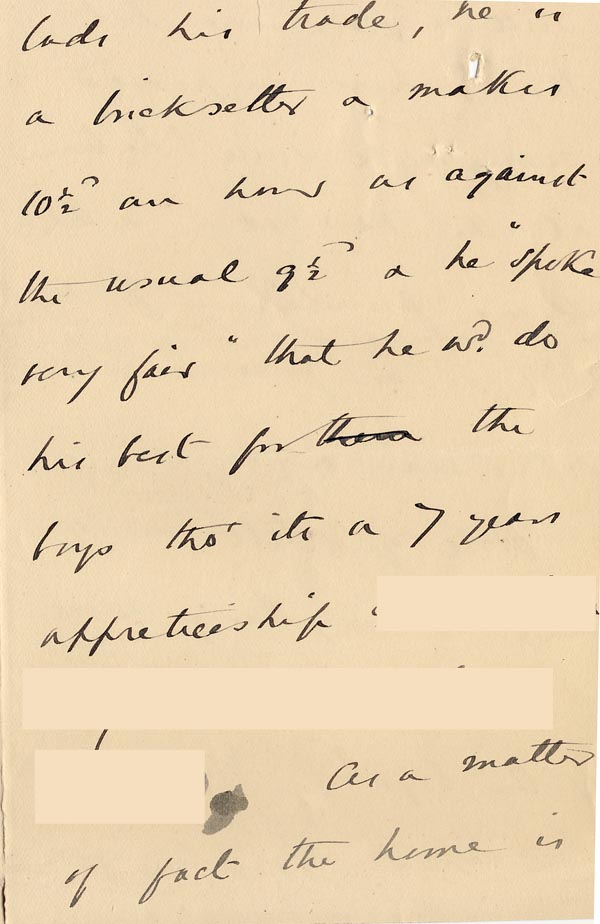 lads his trade, he is
a bricksetter & makes
10½ᵈ an hour as against
the usual 9½ᵈ & he "spoke
very fair" that he wᵈ. do
his best for them the
boys tho' its a 7 years
appreticeship
As a matter
of fact the home is